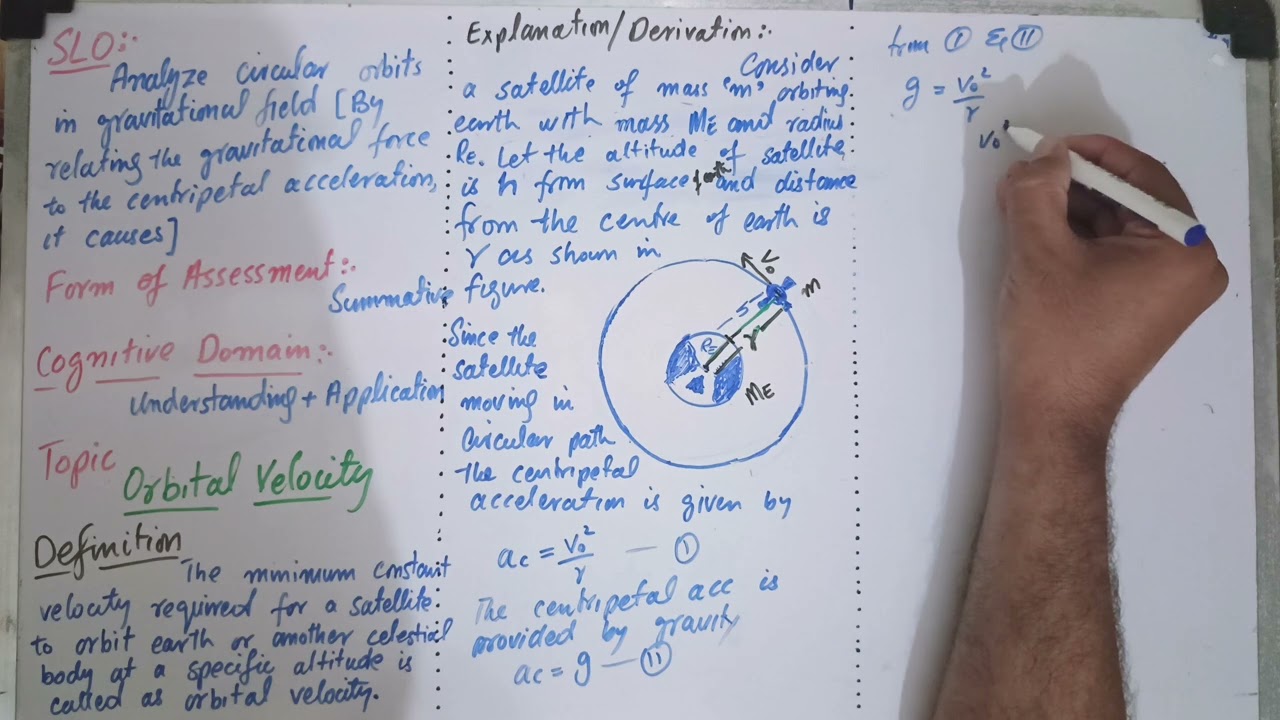 SLO:-
Analyze circular orbits
in gravitational field [By
relating the gravitational force
to the centripetal acceleration,
it causes]
Form of Assessment:-
Summative
Cognitive Domain:-
Understanding + Application
Topic
Orbital Velocity
Definition
The minimum constant
velocity required for a satellite
to orbit earth or another celestial
body at a specific altitude is
called as orbital velocity.
Explanation/Derivation:-
Consider
a satellite of mass 'm' orbiting
earth with mass ME and radius
Re. Let the altitude of satellite
is h from surface of earth and distance
from the centre of earth is
r as shown in
figure.
Since the
satellite
moving in
circular path
the centripetal
acceleration is given by
ac = v₀²/r — (I)
The centripetal acc is
provided by gravity
ac = g — (II)
V₀
m
r
RE
ME
from (I) & (II)
g = v₀²/r
v₀²